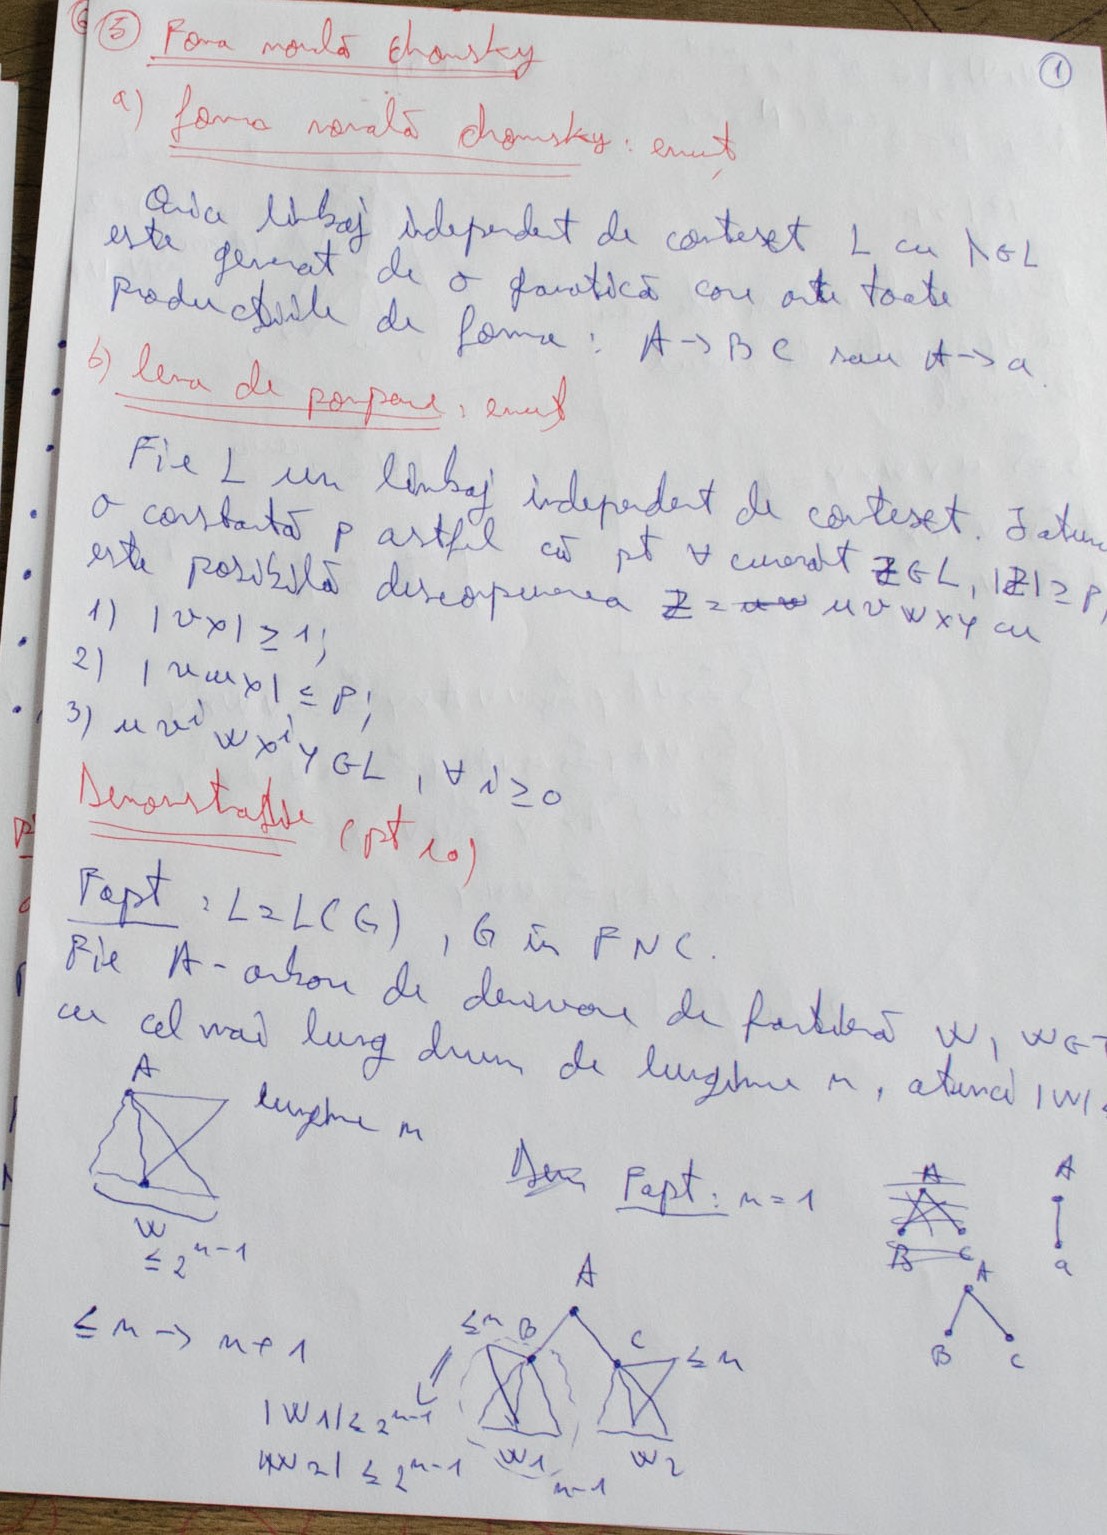 ⑤ Forma normală Chomsky
①
a) forma normală Chomsky: enunț
Orice limbaj independent de context L cu λ∈L
este generat de o gramatică care are toate
producțiile de forma: A→BC sau A→a.
b) lema de pompare: enunț
Fie L un limbaj independent de context. Ǝ atunci
o constantă p astfel că pt ∀ cuvânt Z∈L, |Z|≥p,
este posibilă descompunerea Z = uvwxy cu
1) |vx| ≥ 1;
2) |vwx| ≤ p;
3) uvⁱwxⁱy∈L, ∀ i≥0
Demonstrație (pt 10)
Fapt: L=L(G), G în FNC.
Fie A-arbore de derivare de frontieră w, w∈T
cu cel mai lung drum de lungime n, atunci |w|≤
A
lungime n
w
≤ 2ⁿ⁻¹
Dem Fapt: n=1
A
B C
A
a
A
B C
≤ n → n+1
A
≤n B
C ≤n
|W1| ≤ 2ⁿ⁻¹
|W2| ≤ 2ⁿ⁻¹
W1
W2
n-1